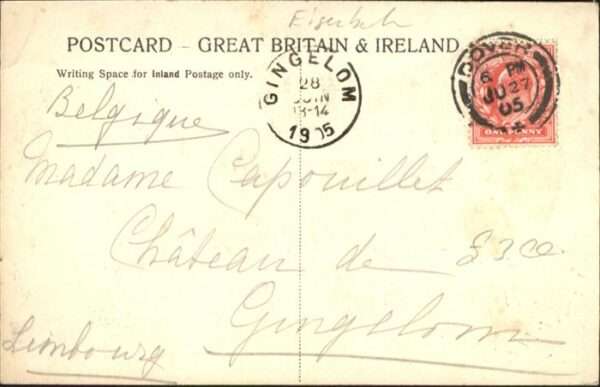 POSTCARD – GREAT BRITAIN & IRELAND
Writing Space for inland Postage only.
GINGELOM
28
JUIN
13-14
1905
DOVER
6 PM
JU 27
05
ONE PENNY
Belgique
Madame Capouillet
Château de
Gingelom
Limbourg